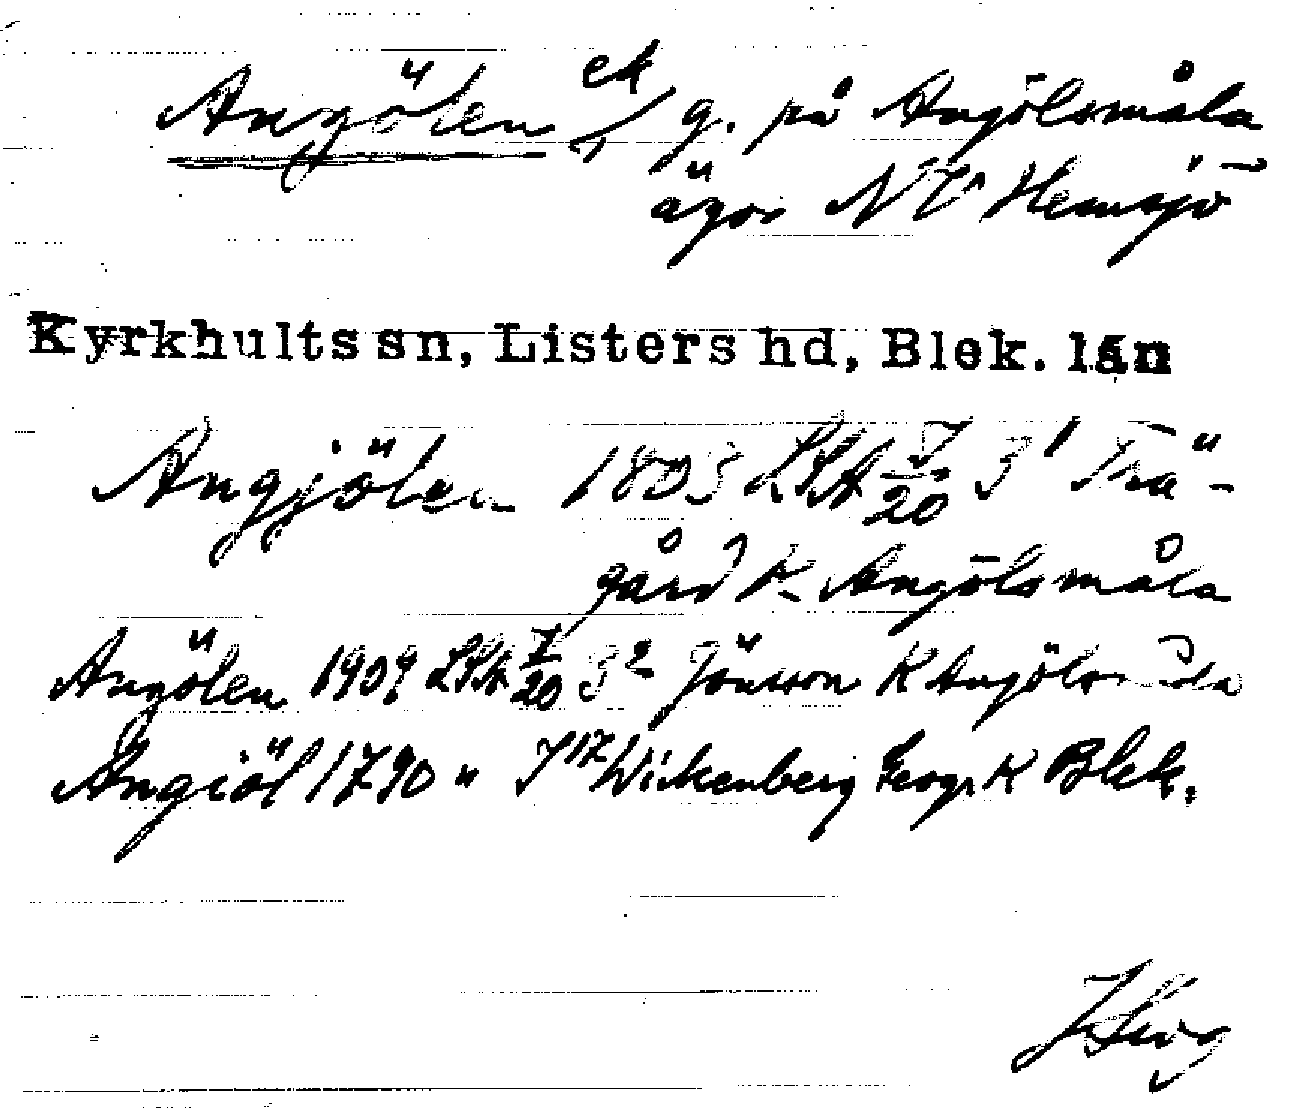 Angölen ek g. på Angölsmåla
ägor NV Hemsjö
Kyrkhults sn, Listers hd, Blek. län
Angjölen 1803 LSA J/20 3¹ Trä-
gård K. Angölsmåla
Angölen 1909 LSA J/20 3² Jönsson K Angölsmåla
Angiöl 1790 " J 17 Wickenberg Geogr K Blek.